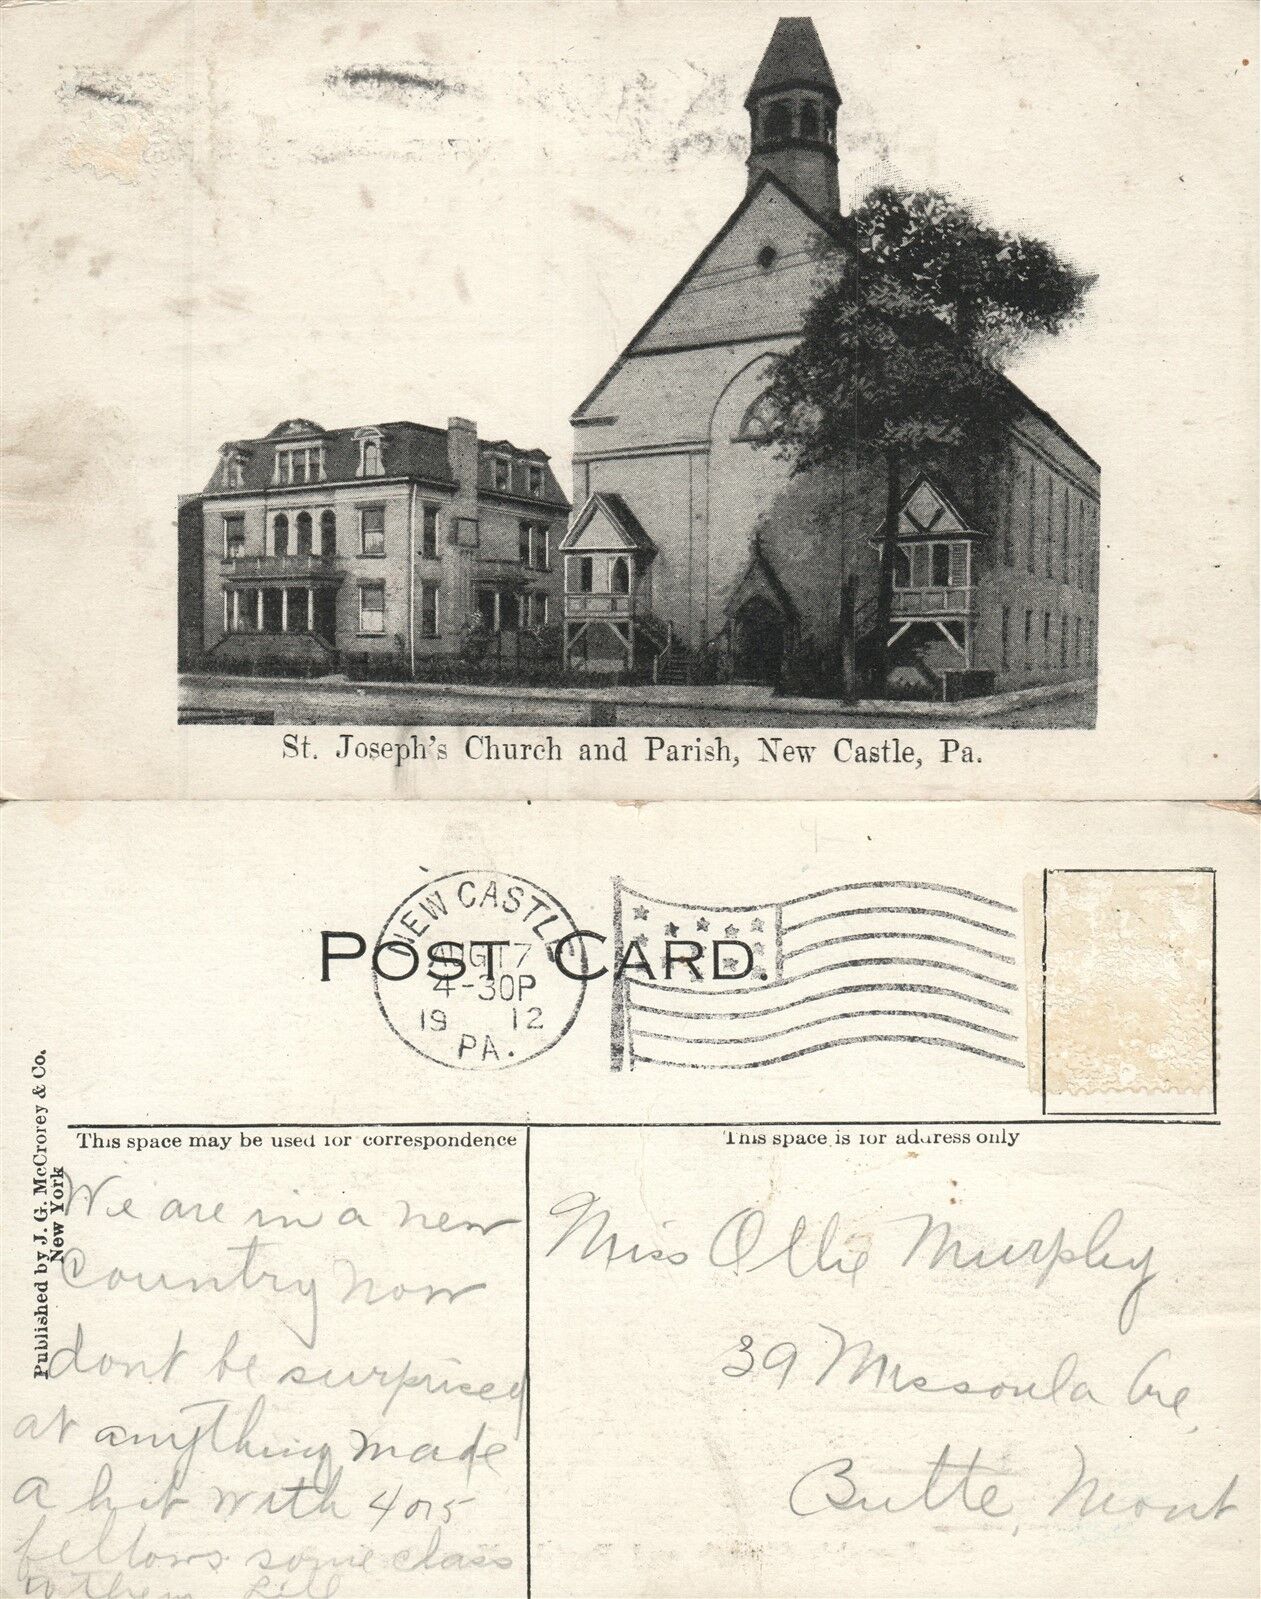 St. Joseph's Church and Parish, New Castle, Pa.
POST CARD.
NEW CASTLE
AUG 17
4-30P
19 12
PA.
Published by J. G. McCrorey & Co.
New York
This space may be used for correspondence
This space is for address only
We are in a new
Country now
dont be surprised
at anything made
a hit with 4 or 5
fellows some class
to them
Miss Ollie Murphy
39 Missoula Ave,
Butte, Mont